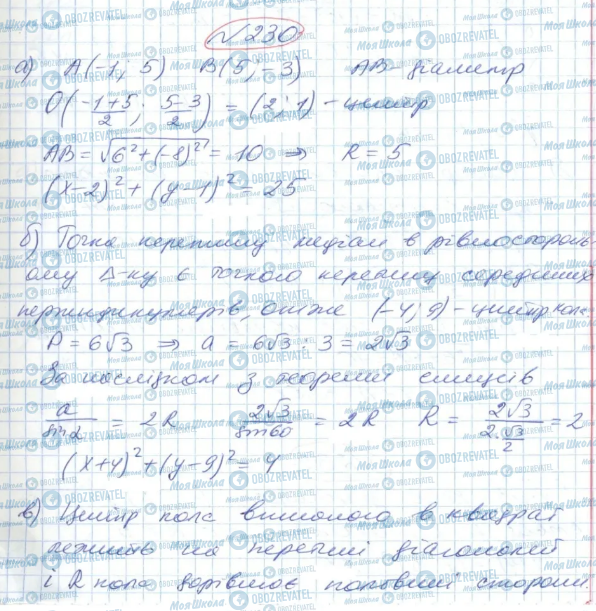 №230
а) A(-1; 5) B(5; -3) AB - діаметр
O((-1+5)/2; (5-3)/2) = (2; 1) - центр
AB = √(6²+(-8)²) = 10 ⇒ R = 5
(x-2)² + (y-1)² = 25
б) Точка перетину медіан в рівносторонь-
ому Δ-ку є точкою перетину серединних
перпендикулярів, отже (-4; 9) - центр кола
P = 6√3 ⇒ a = 6√3 : 3 = 2√3
За наслідком з теореми синусів
a/sin α = 2R 2√3/sin 60 = 2R R = 2√3/(2·√3/2) = 2
(x+4)² + (y-9)² = 4
в) Центр кола вписаного в квадрат
лежить на перетині діагоналей
і R кола дорівнює половині сторони